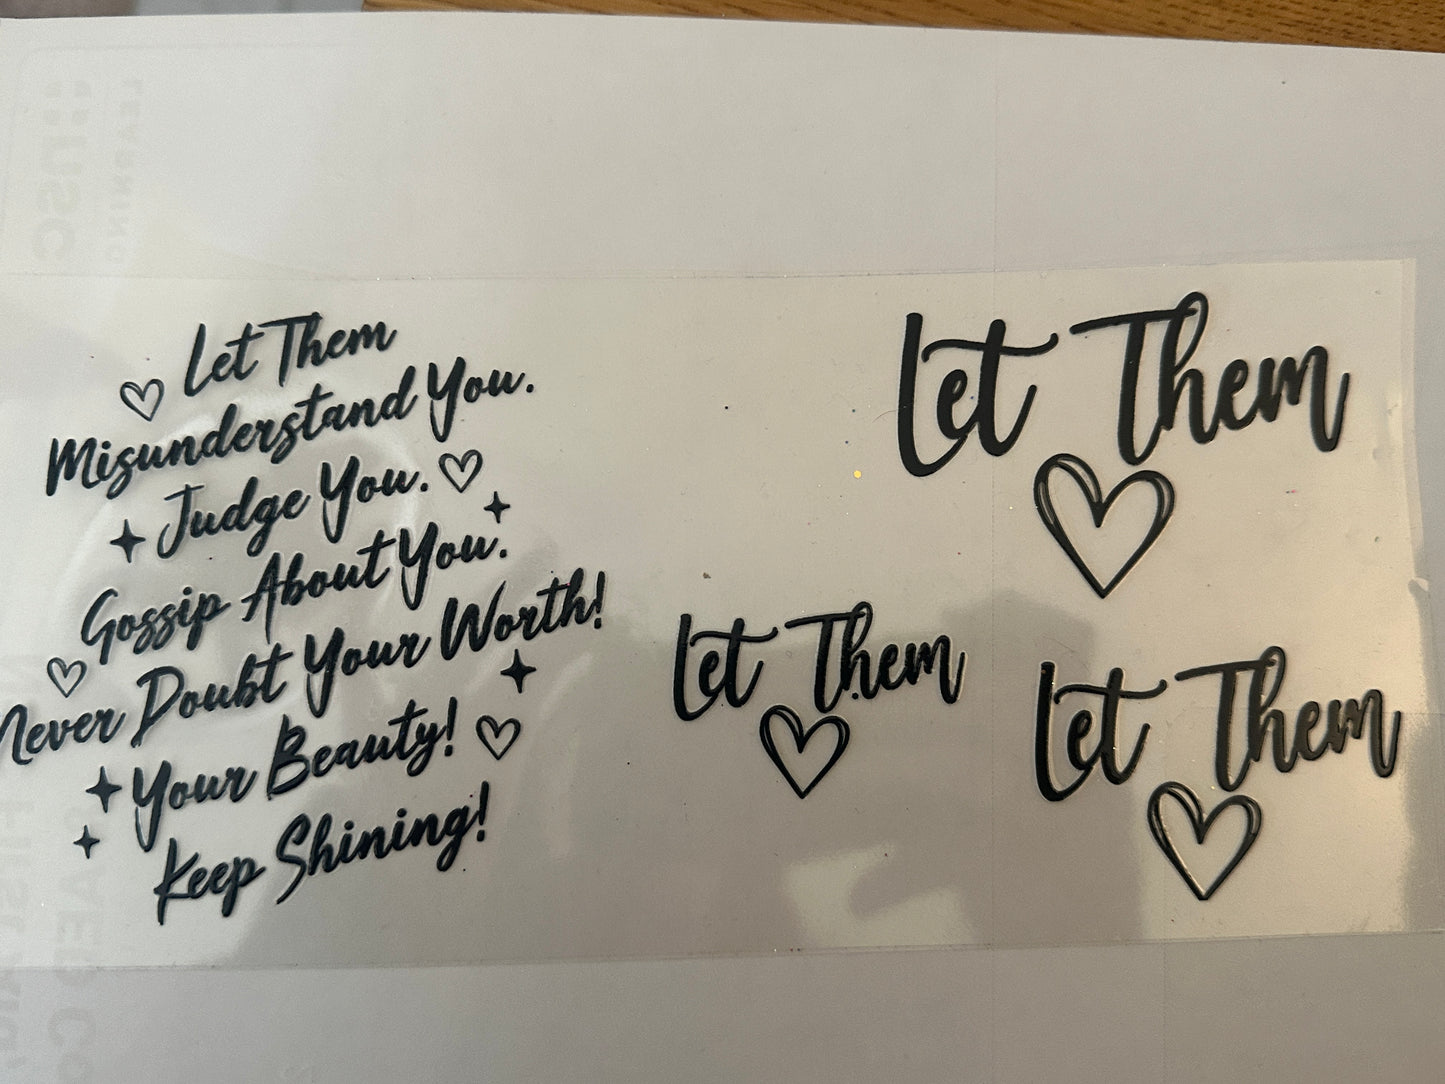 Let Them
Misunderstand You.
Judge You.
Gossip About You.
Never Doubt Your Worth!
Your Beauty!
Keep Shining!
Let Them
Let Them
Let Them
LEARNING